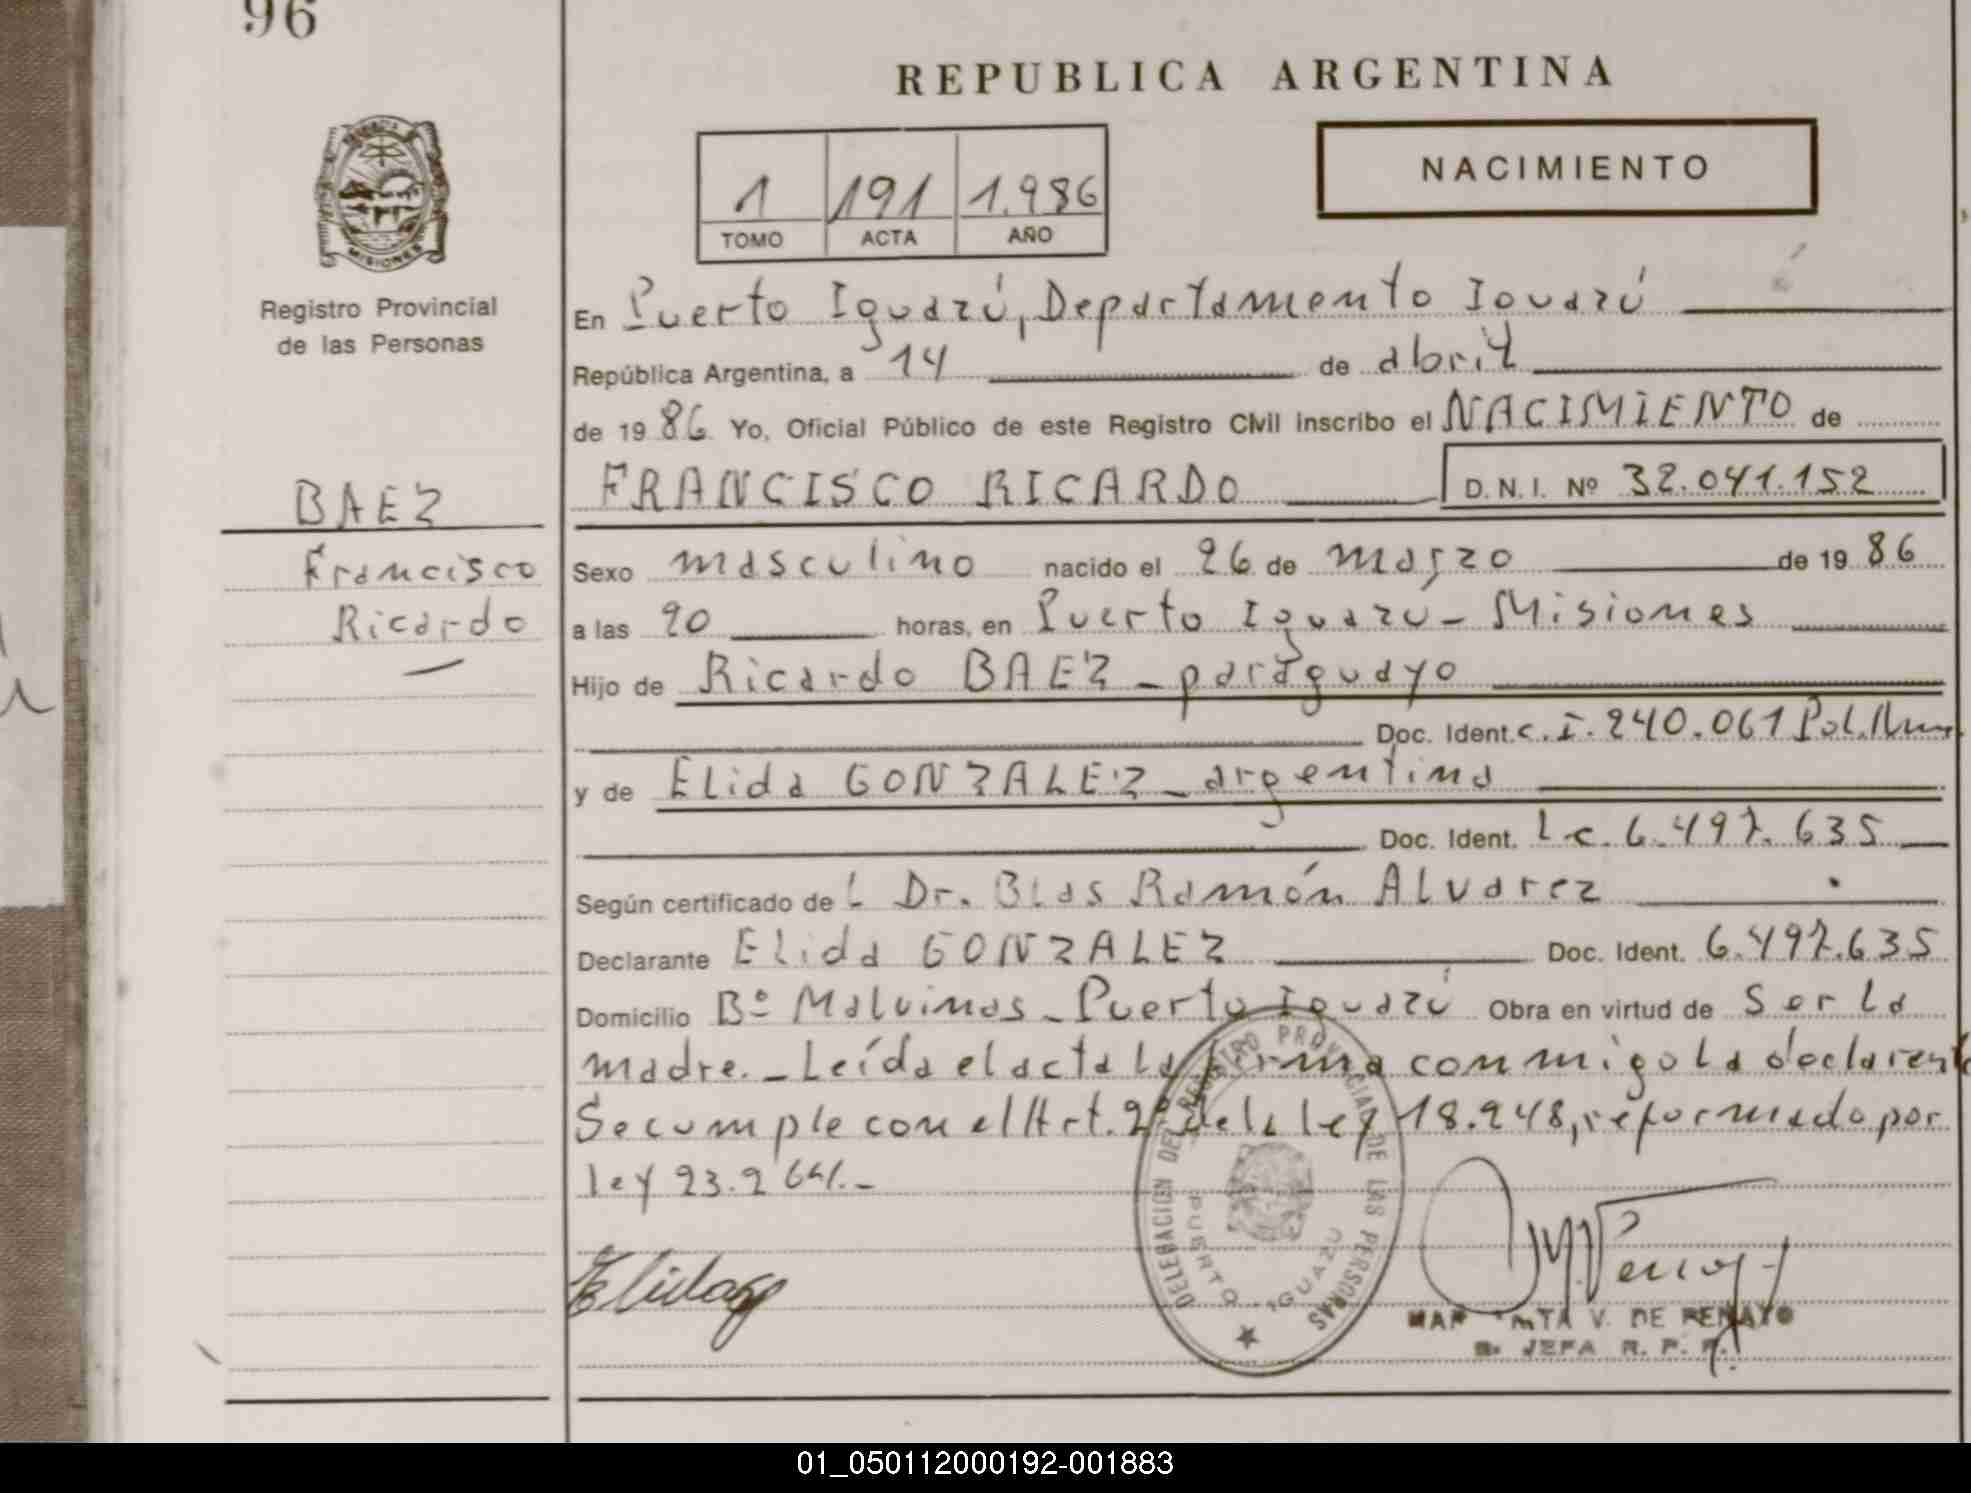 96
REPUBLICA ARGENTINA
NACIMIENTO
1 191 1.986
TOMO ACTA AÑO
MISIONES
Registro Provincial
de las Personas
BAEZ
Francisco
Ricardo
En Puerto Iguazú, Departamento Iguazú
República Argentina, a 14 de abril
de 19 86 Yo, Oficial Público de este Registro Civil inscribo el NACIMIENTO de
FRANCISCO RICARDO D.N.I. Nº 32.041.152
Sexo masculino nacido el 26 de marzo de 19 86
a las 20 horas, en Puerto Iguazu - Misiones
Hijo de Ricardo BAEZ - paraguayo
Doc. Ident. C.I. 240.061 Pol.
y de Elida GONZALEZ - argentina
Doc. Ident. L.C. 6.497.635
Según certificado de L Dr. Blas Ramón Alvarez
Declarante Elida GONZALEZ Doc. Ident. 6.497.635
Domicilio Bº Malvinas - Puerto Iguazú Obra en virtud de Ser la
madre. - Leída el acta la firma conmigo la declarente
Se cumple con el Art. 2º de la ley 18.248, reformado por
ley 23.264. -
DELEGACION DEL REGISTRO PROVINCIAL DE LAS PERSONAS
PUERTO IGUAZU
Elidag
V. DE PENAYO
JEFA R. P. P.
01_050112000192-001883